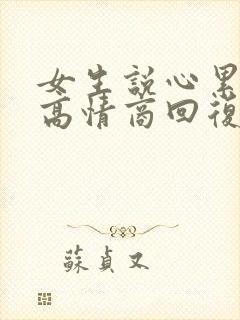 女生説心累
高情商回復
蘇貞又